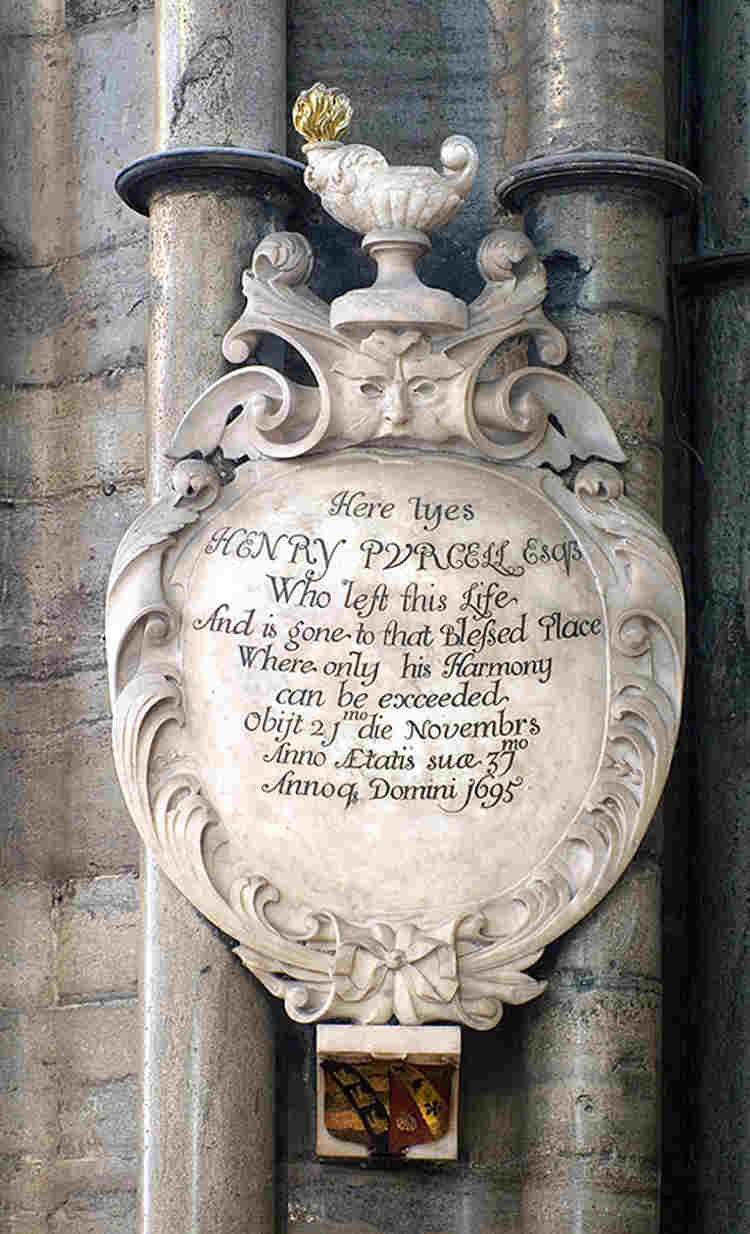 Here lyes
HENRY PVRCELL Esqꝫ
Who left this Life
And is gone to that Blessed Place
Where only his Harmony
can be exceeded
Obijt 21mo die Novembrs
Anno Ætatis suæ 37mo
Annoq Domini 1695